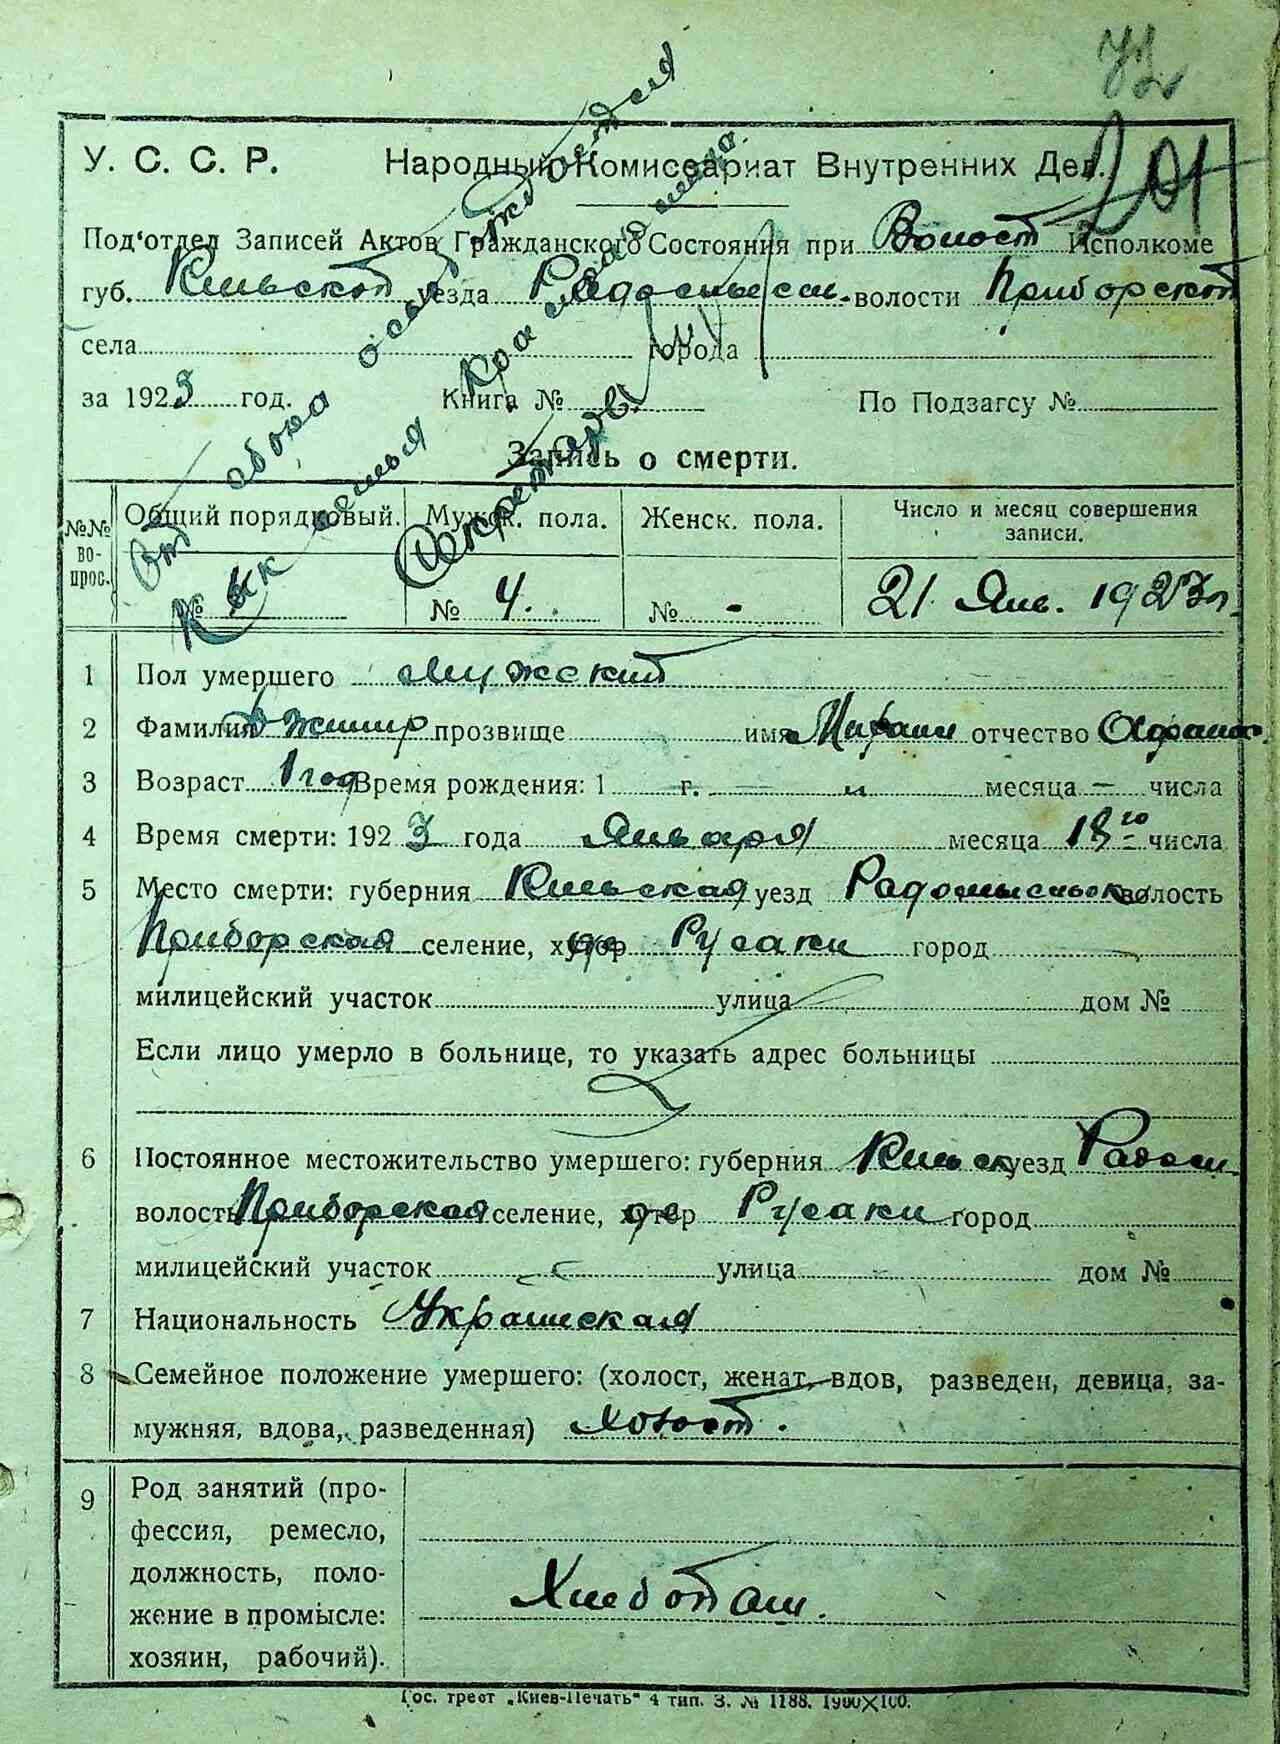 201
У. С. С. Р. Народный Комиссариат Внутренних Дел.
Под'отдел Записей Актов Гражданского Состояния при Волост Исполкоме
губ. Киевской уезда Радомысл. волости Приборской
села города
за 1923 год. Книга № По Подзагсу №
От сбора освобождается
Секретарь
Запись о смерти.
№№ вопрос. Общий порядковый. Мужск. пола. Женск. пола. Число и месяц совершения записи.
№ № 4. № - 21 Янв. 1923 г.
1 Пол умершего Мужский
2 Фамилия прозвище имя отчество
3 Возраст 1 год Время рождения: 1 г. — месяца — числа
4 Время смерти: 1923 года Января месяца 18го числа
5 Место смерти: губерния Киевская уезд Радомысльск волость
Приборская селение, хутор Русаки город
милицейский участок улица дом №
Если лицо умерло в больнице, то указать адрес больницы
6 Постоянное местожительство умершего: губерния Киевск уезд Радом.
волость Приборская селение, хутор Русаки город
милицейский участок улица дом №
7 Национальность Украинская
8 Семейное положение умершего: (холост, женат, вдов, разведен, девица, за-
мужняя, вдова, разведенная) холост.
9 Род занятий (про-
фессия, ремесло,
должность, поло-
жение в промысле:
хозяин, рабочий).
Хлебопаш.
Гос. трест „Киев-Печать“ 4 тип. З. № 1188. 1900×100.